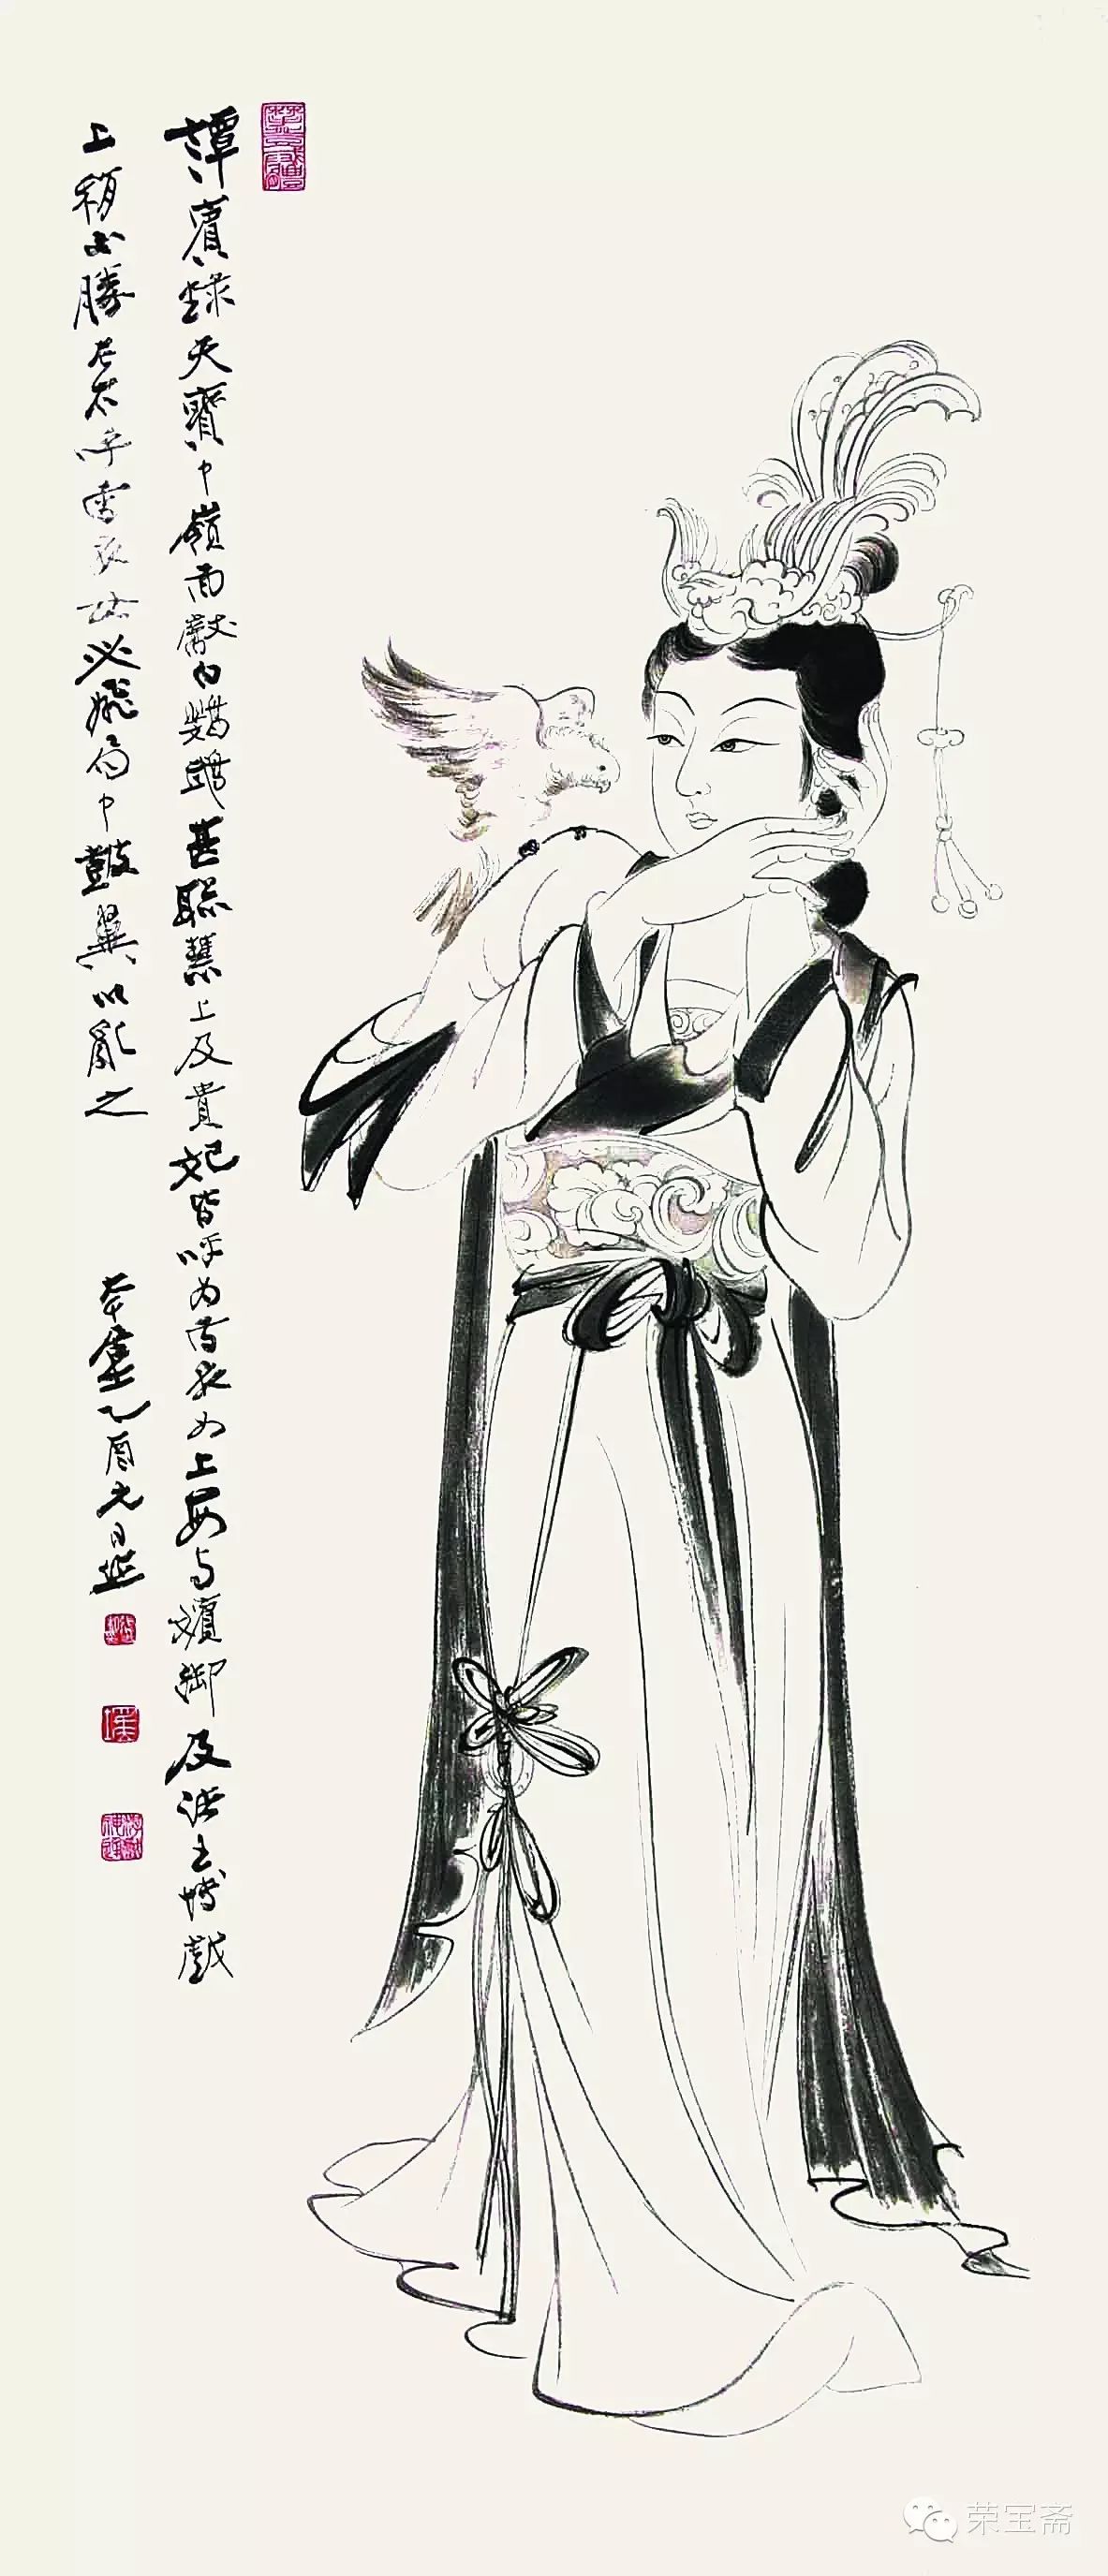 谭賓錄天寶中嶺南獻白鸚鵡甚聰慧上及貴妃皆呼为雪衣女上每与嬪御及诸王博戲
上稍不勝左右呼雪衣娘必飛局中鼓翼以亂之
乙酉元日
荣宝斋